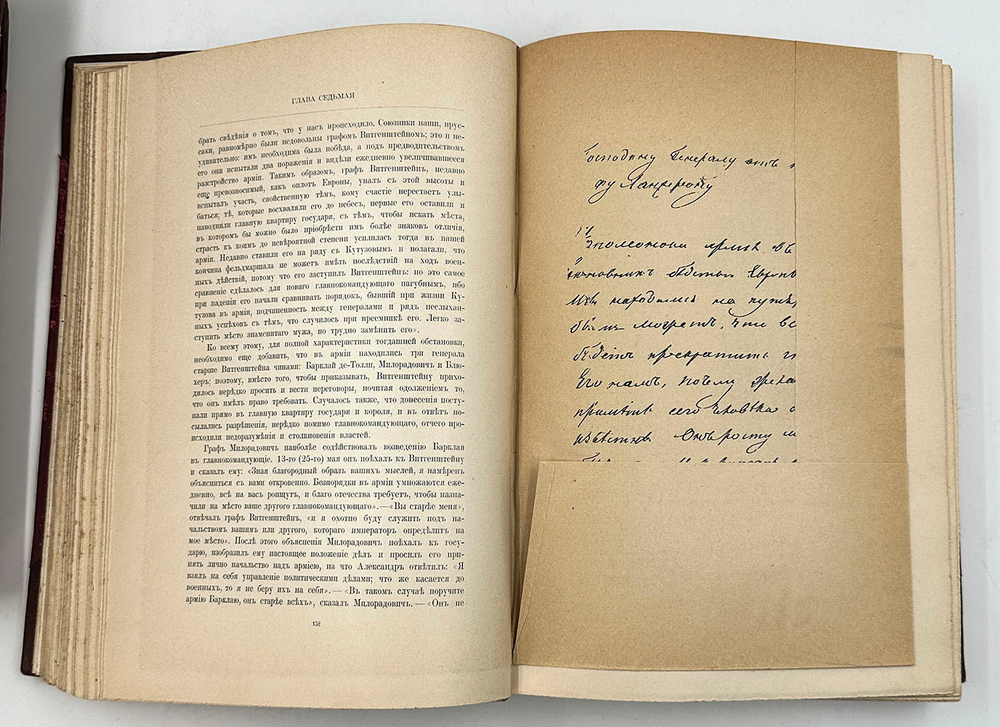 ГЛАВА СЕДЬМАЯ
брать свѣдѣнія о томъ, что у насъ происходило. Союзники наши, прус-
саки, равномѣрно были недовольны графомъ Витгенштейномъ; это и не-
удивительно: имъ необходима была побѣда, а подъ предводительствомъ
его они испытали два пораженія и видѣли ежедневно увеличивавшееся
разстройство арміи. Такимъ образомъ, графъ Витгенштейнъ, недавно
еще превозносимый, какъ оплотъ Европы, упалъ съ этой высоты и
испыталъ участь, свойственную тѣмъ, кому счастіе перестаетъ улы-
баться; тѣ, которые восхваляли его до небесъ, первые его оставили и
наводнили главную квартиру государя, съ тѣмъ, чтобы искать мѣста,
въ которомъ бы можно было пріобрѣсти имъ болѣе знаковъ отличія,
страсть къ коимъ до невѣроятной степени усилилась тогда въ нашей
арміи. Недавно ставили его на ряду съ Кутузовымъ и полагали, что
кончина фельдмаршала не можетъ имѣть послѣдствій на ходъ воен-
ныхъ дѣйствій, потому что его заступилъ Витгенштейнъ; но это самое
сравненіе сдѣлалось для новаго главнокомандующаго пагубнымъ, ибо
при паденіи его начали сравнивать порядокъ, бывшій при жизни Ку-
тузова въ арміи, подчиненность между генералами и рядъ неслыхан-
ныхъ успѣховъ съ тѣмъ, что случилось при преемникѣ его. Легко за-
ступить мѣсто знаменитаго мужа, но трудно замѣнить его».
Ко всему этому, для полной характеристики тогдашней обстановки,
необходимо еще добавить, что въ арміи находились три генерала
старше Витгенштейна чинами: Барклай де-Толли, Милорадовичъ и Блю-
херъ; поэтому, вмѣсто того, чтобы приказывать, Витгенштейну прихо-
дилось нерѣдко просить и вести переговоры, почитая одолженіемъ то,
что онъ имѣлъ право требовать. Случалось также, что донесенія посту-
пали прямо въ главную квартиру государя и короля, и въ отвѣтъ по-
сылались разрѣшенія, нерѣдко помимо главнокомандующаго, отчего про-
исходили недоразумѣнія и столкновенія властей.
Графъ Милорадовичъ наиболѣе содѣйствовалъ возведенію Барклая
въ главнокомандующіе. 13-го (25-го) мая онъ поѣхалъ къ Витгенштейну
и сказалъ ему: «Зная благородный образъ вашихъ мыслей, я намѣренъ
объясниться съ вами откровенно. Безпорядки въ арміи умножаются еже-
дневно, всѣ на васъ ропщутъ, и благо отечества требуетъ, чтобы назна-
чили на мѣсто ваше другого главнокомандующаго».—«Вы старѣе меня»,
отвѣчалъ графъ Витгенштейнъ, «и я охотно буду служить подъ на-
чальствомъ вашимъ или другого, котораго императоръ опредѣлитъ на
мое мѣсто». Послѣ этого объясненія Милорадовичъ поѣхалъ къ госу-
дарю, изобразилъ ему настоящее положеніе дѣлъ и просилъ его при-
нять лично начальство надъ арміею, на что Александръ отвѣтилъ: «Я
взялъ на себя управленіе политическими дѣлами; что же касается до
военныхъ, то я не беру ихъ на себя».—«Въ такомъ случаѣ поручите
армію Барклаю, онъ старѣе всѣхъ», сказалъ Милорадовичъ.—«Онъ не
152
Господину Генералу отъ
фу Ланжерону
армія
Европ
Мы находились на пути,
можетъ, что вс
прекратить
Его намъ, почему
примѣтъ сего человѣка